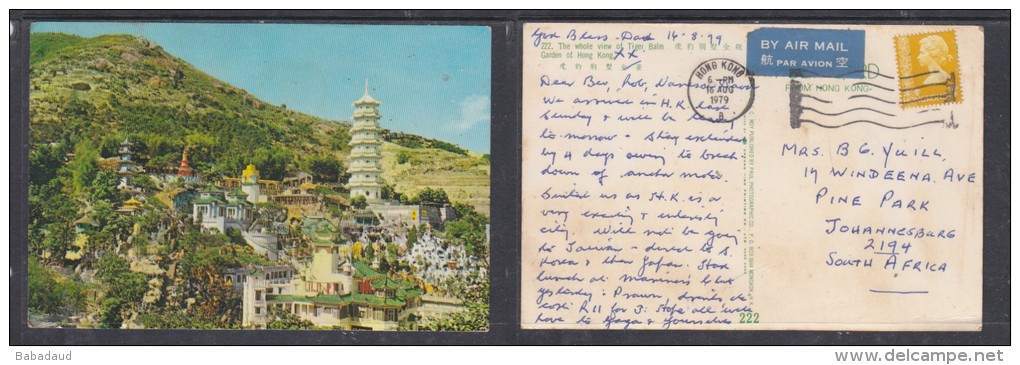 God Bless - Dad 14·8·79
xx
222. The whole view of Tiger Balm
Garden of Hong Kong
BY AIR MAIL
航 PAR AVION 空
FROM HONG KONG
HONG KONG
6 - PM
16 AUG
1979
Dear Bev, Rob,
We arrived in H.K. last
Sunday & will be leaving
to-morrow - Stay extended
by 4 days owing to break
down of motor.
suited us as H.K. is a
very exciting & interesting
city. Will not be going
to Taiwan - direct to S.
Korea & then Japan. Had
lunch at Mariners club
yesterday: Prawns, drinks etc
cost R11 for 3. Hope all well
love to & yourselves
222
MRS. B G. YUILL,
19 WINDEENA AVE
PINE PARK
JOHANNESBURG
2194
SOUTH AFRICA
Babadaud
www.delcampe.net